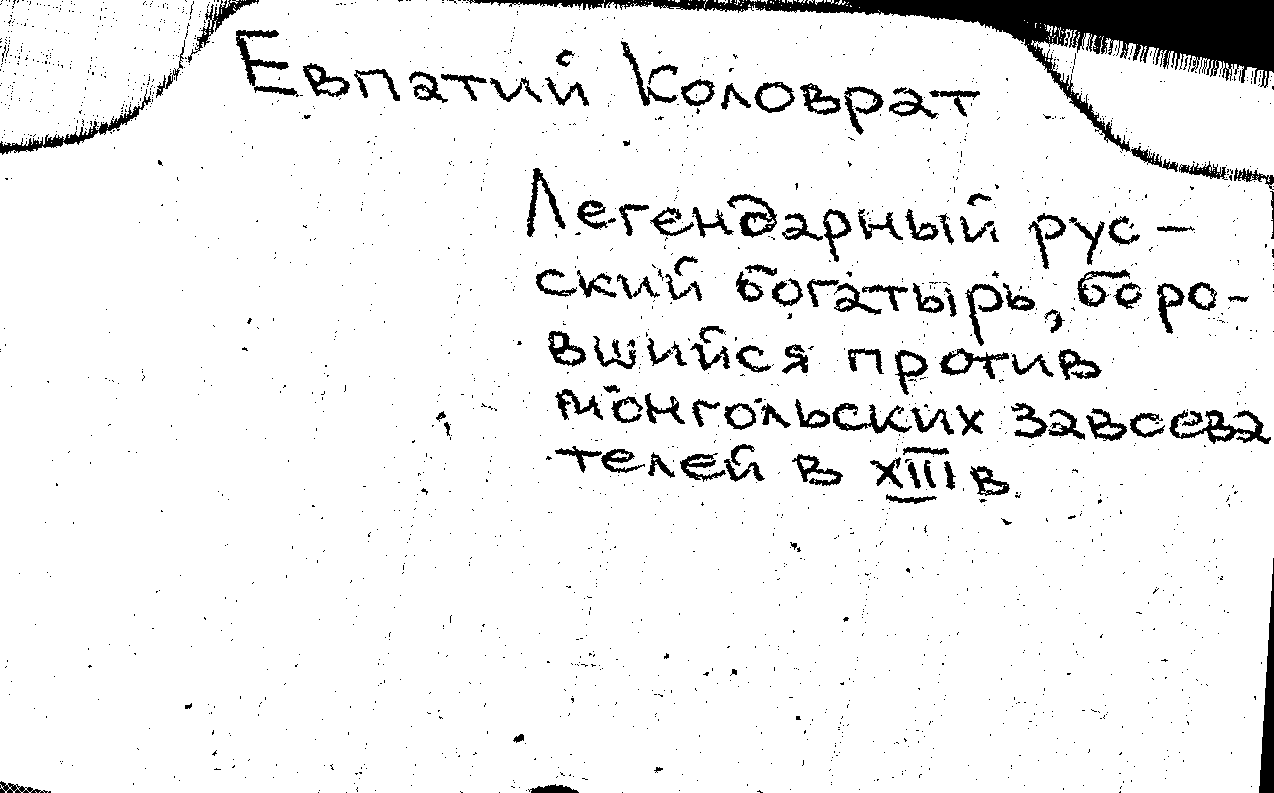 Евпатий Коловрат
Легендарный рус-
ский богатырь, боро-
вшийся против
монгольских завоева
телей в XIII в